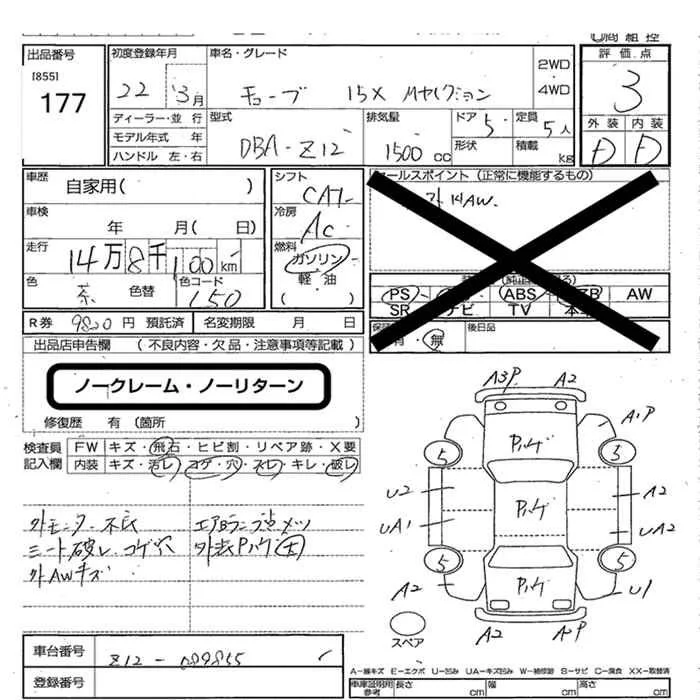 出品番号
[855]
177
初度登録年月
22 3月
車名・グレード
キューブ 15X Mセレクション
2WD
4WD
評価点
3
ディーラー・並行
モデル年式 年
ハンドル 左・右
型式
DBA-Z12
排気量
1500 cc
ドア 5
形状
定員 5人
積載 kg
外装 内装
D D
車歴
自家用( )
車検
年 月( 日)
走行
14万8千100km
色
茶
色替
色コード
L50
シフト
CAT
冷房
AC
燃料
ガソリン
軽・油
( )
セールスポイント(正常に機能するもの)
AW
PS
ABS
AW
SR ナビ TV
有・無
後日品
R券 9820円 預託済 名変期限 月 日
出品店申告欄 (不良内容・欠品・注意事項等記載)
ノークレーム・ノーリターン
修復歴 有(箇所
検査員
記入欄
FW キズ・飛石・ヒビ割・リペア跡・X要
内装 キズ・汚レ・コゲ・穴・スレ・キレ・破レ
外モニター不良 エアBランプ点メツ
シート破レ コゲ穴 外装Pハゲ 大
外AWキズ
A3P A2
A1P
Pハゲ
5 5
U2 A2
Pハゲ
UA1 UA2
5 5
Pハゲ
A2 U1
スペア
A2
車台番号
Z12-089855
登録番号
A−線キズ E−エクボ U−凹み UA−キズ凹み W−補修跡 S−サビ C−腐食 XX−取替済
車庫証明用
参考
長さ cm 幅 cm 高さ cm